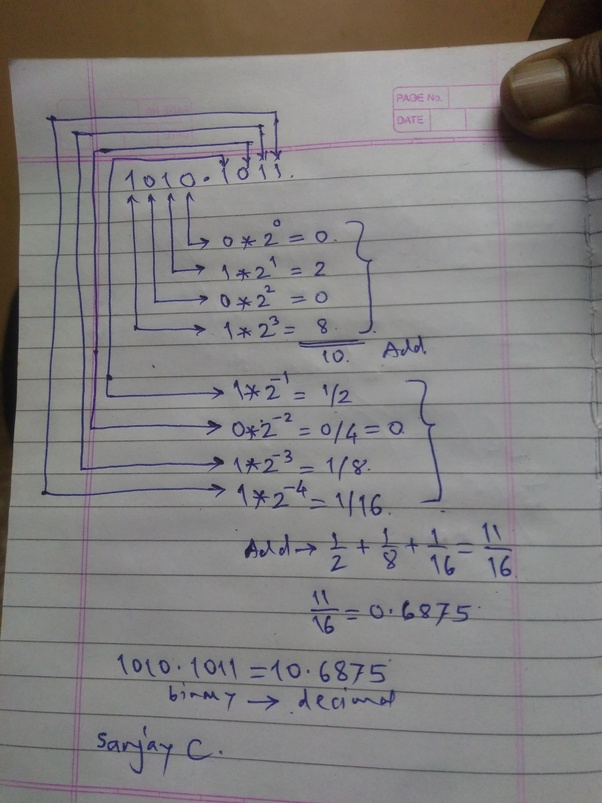 PAGE No.
DATE
1010.1011.
0*2⁰ = 0.
1*2¹ = 2
0*2² = 0
1*2³ = 8.
10. Add
1*2⁻¹ = 1/2
0*2⁻² = 0/4 = 0.
1*2⁻³ = 1/8.
1*2⁻⁴ = 1/16.
Add → 1/2 + 1/8 + 1/16 = 11/16
11/16 = 0.6875.
1010.1011 = 10.6875
binary → decimal
Sanjay C.